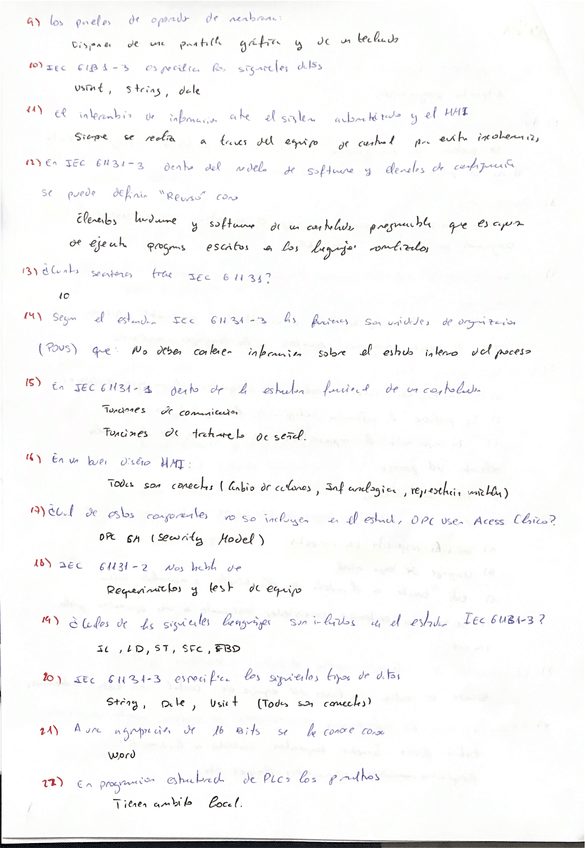 9) Los paneles de operador de membrana:
Disponen de una pantalla gráfica y de un teclado
10) IEC 61131-3 especifica los siguientes datos
usint, string, date
11) El intercambio de informacion entre el sistema automatizado y el HMI
Siempre se realiza a traves del equipo de control para evitar incoherencias
12) En IEC 61131-3 dentro del modelo de software y elementos de configuración
se puede definir "Recurso" como
Elementos hardware y software de un controlador programable que es capaz
de ejecutar programas escritos en los lenguajes normalizados
13) ¿Cuantas secciones trae IEC 61131?
10
14) Segun el estandar IEC 61131-3 las funciones son unidades de organizacion
(POUS) que: No deben contener informacion sobre el estado interno del proceso
15) En IEC 61131-1 dentro de la estructura funcional de un controlador
Funciones de comunicacion
Funciones de tratamiento de señal.
16) En un buen diseño HMI:
Todas son correctas (Cambio de colores, Inf analogica,
17) ¿Cual de estos componentes no se incluyen en el estandar OPC Clasico?
OPC SM (Security Model)
18) IEC 61131-2 Nos habla de
Requerimientos y test de equipo
19) ¿Cuales de los siguientes lenguajes son incluidos en el estandar IEC 61131-3?
IL, LD, ST, SFC, FBD
20) IEC 61131-3 especifica los siguientes tipos de datos
String, Date, Usint (Todas son correctas)
21) A una agrupacion de 16 Bits se le conoce como
Word
22) En programacion estructurada de PLCs los
Tienen ambito local.